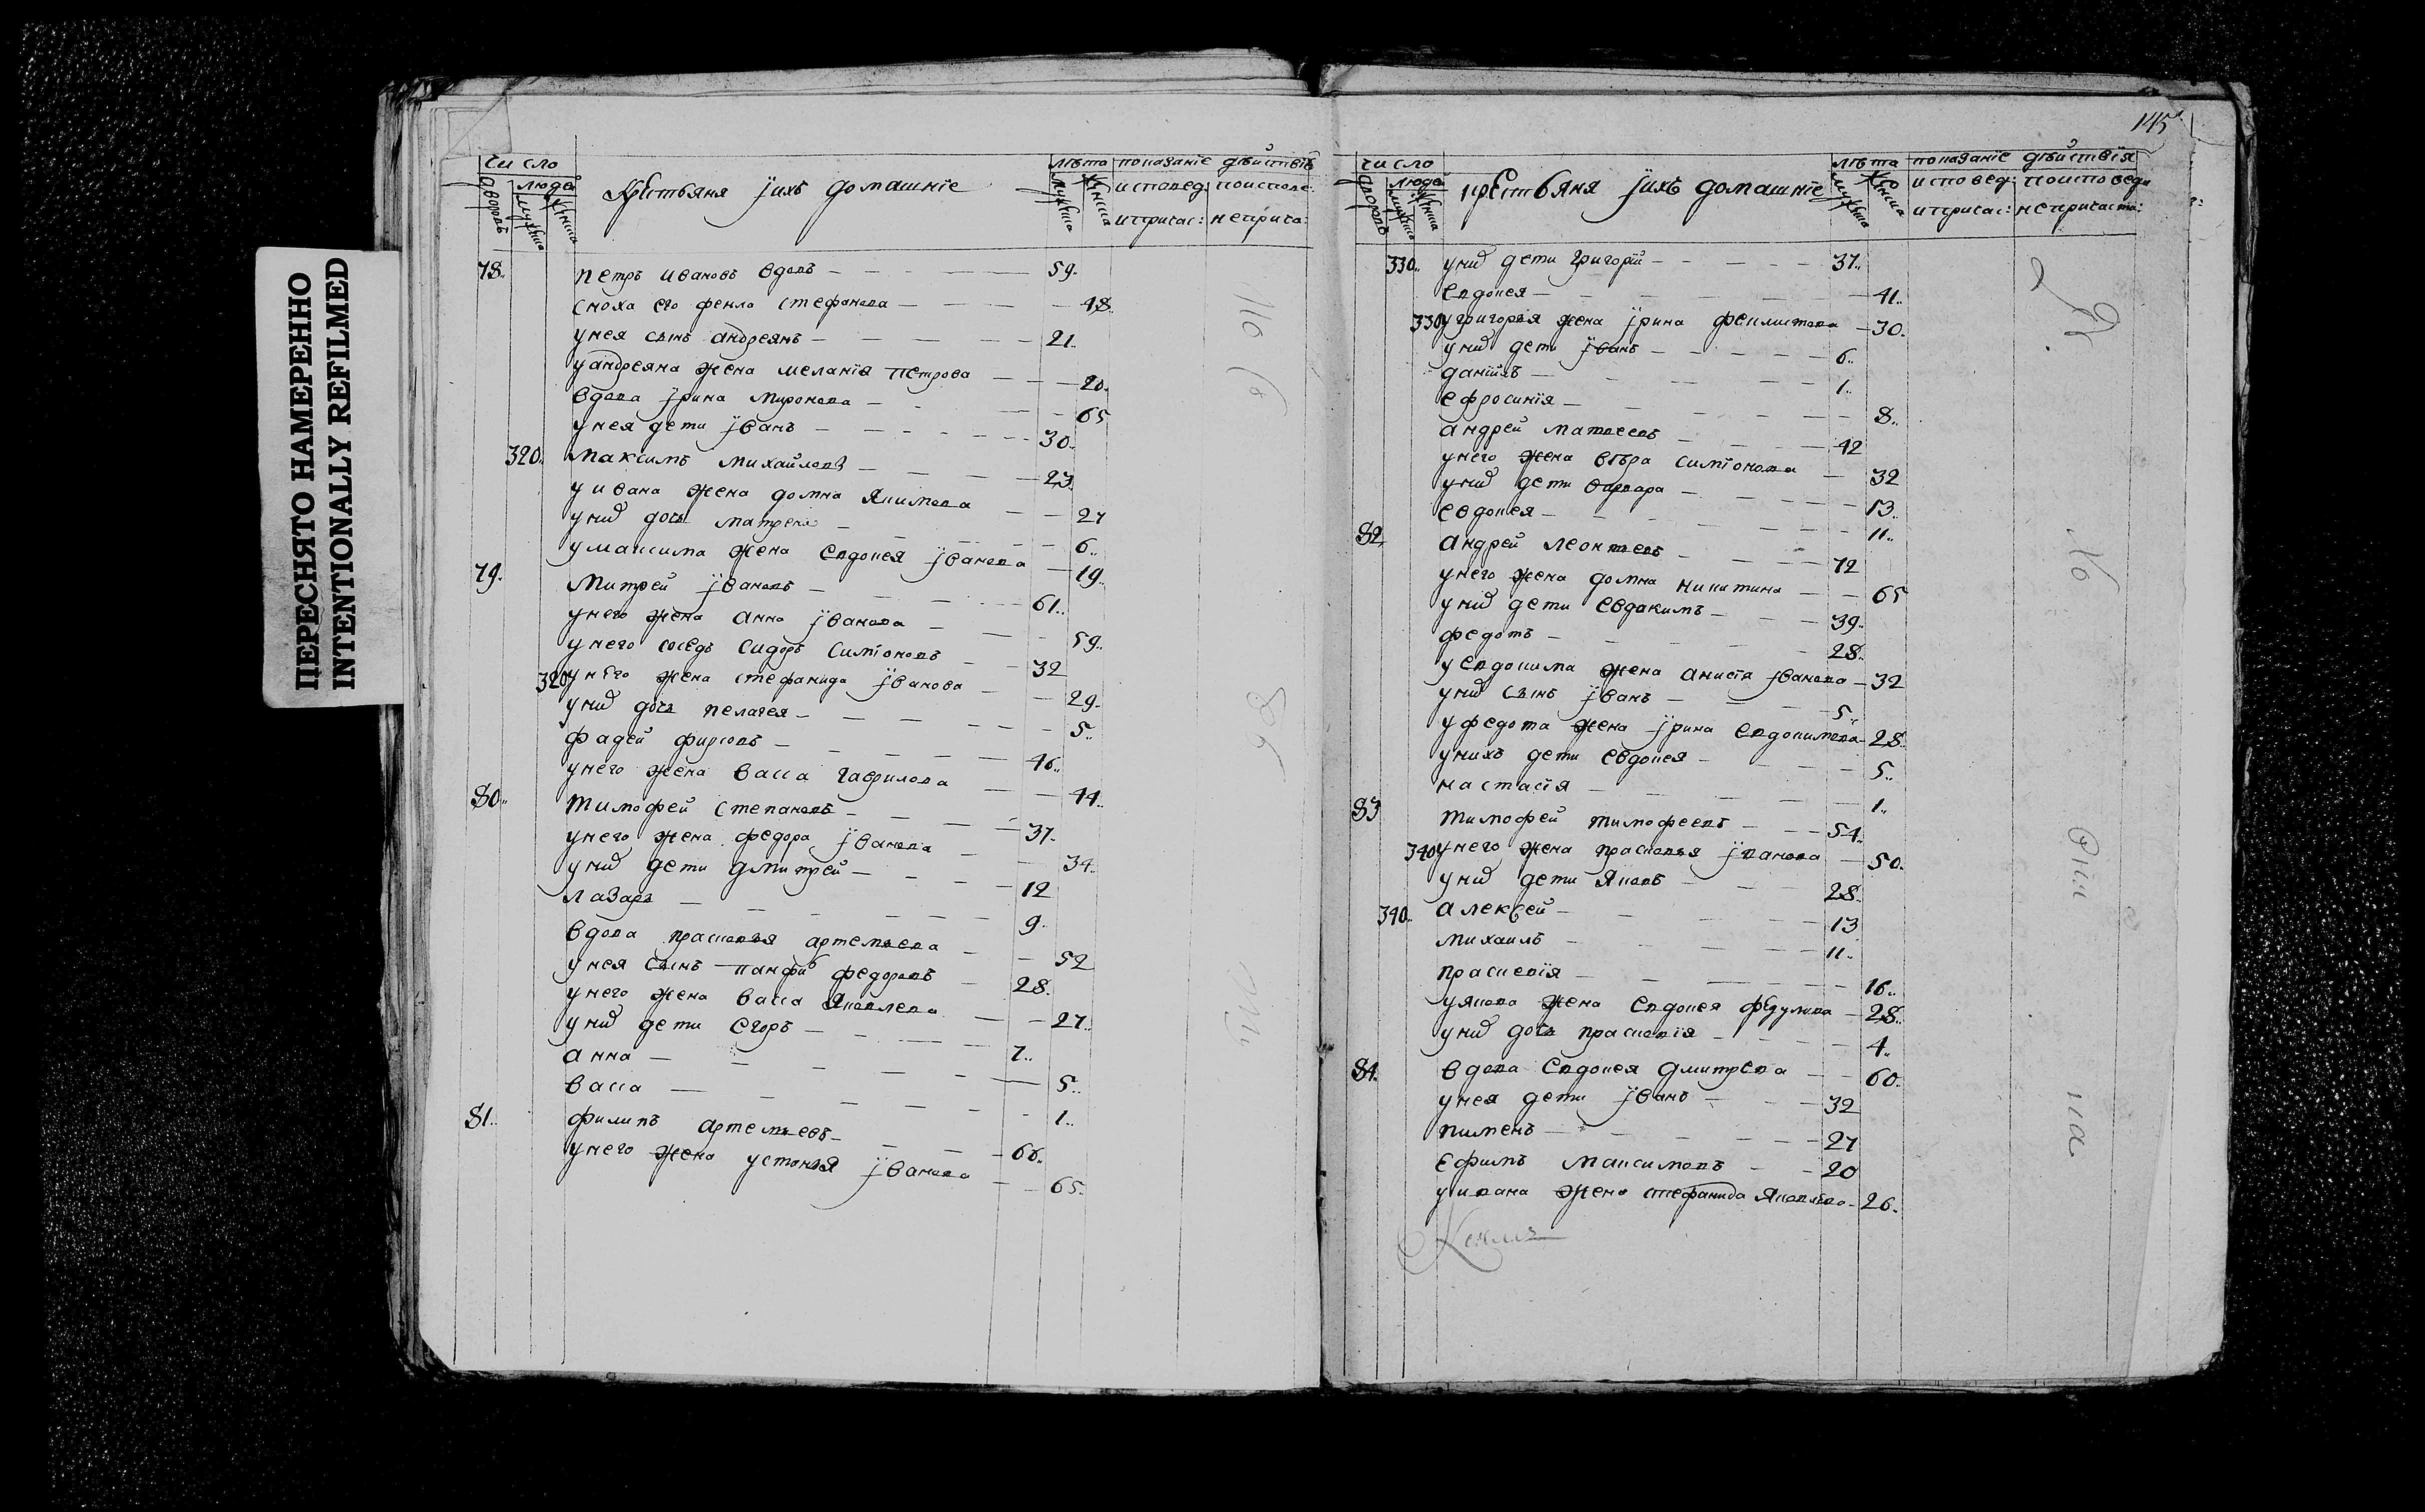 ПЕРЕСНЯТО НАМЕРЕННО
INTENTIONALLY REFILMED
число лѣта показанiе дѣйствiѣ
дворовъ людей Крестьяня ӱихъ домашнiе исповед: поисповѣ:
ипричас: неприча:
78. петръ ивановъ вдовъ 59.
сноха его фекла стефанова 48.
унея сынъ андреянъ 21.
уандреяна жена меланiя петрова 20.
вдова ӱрина миронова 65
унея дети ӱванъ 30.
320. максимъ михайловъ 23.
уивана жена домна якимова 27
унихъ дочь матрена 6.
умаксима жена евдокея ӱванова 19.
79. митрей ӱвановъ 61.
унего жена анна ӱванова 59.
унего соседъ сидоръ симiоновъ 32
320 унего жена стефанида ӱванова 29.
унихъ дочь пелагея 5.
фадей фирсовъ 46.
унего жена васса гаврилова 44.
80. тимофей степановъ 37.
унего жена федора ӱванова 34.
унихъ дети дмитрей 12
лазарь 9.
вдова прасковья артемьева 52
унея сынъ панфил федоровъ 28.
унего жена васса яковлева 27.
унихъ дети егоръ 7.
анна 5.
васса 1.
81. филипъ артемьевъ 66.
унего жена устинья ӱванова 65.
145
число лѣта показанiе дѣйствiя
дворовъ людей крестьяня ӱихъ домашнiе исповед: поисповеди
ипричас: непричаста:
330. унихъ дети григорiй 37.
евдокея 41.
330 угригорья жена ӱрина феклистова 30.
унихъ дети ӱванъ 6.
данiилъ 1.
ефросинiя 8.
андрей матвеевъ 42
унего жена вѣра симiонова 32
унихъ дети варвара 13.
евдокея 11.
82. андрей леонтьевъ 72
унего жена домна никитина 65
унихъ дети евдокимъ 39.
федотъ 28.
уевдокима жена анисiя ӱванова 32
унихъ сынъ ӱванъ 5.
уфедота жена ӱрина евдокимова 28.
унихъ дети евдокея 5.
настасiя 1.
83 тимофей тимофеевъ 54.
340 унего жена прасковья ӱванова 50.
унихъ дети яковъ 28.
340. алексей 13
михаилъ 11.
прасковiя 16.
уякова жена евдокея федулова 28.
унихъ дочь прасковiя 4.
84. вдова евдокея дмитрева 60.
унея дети ӱванъ 32
пименъ 27
ефимъ максимовъ 20
уивана жена стефанида яковлева 26.